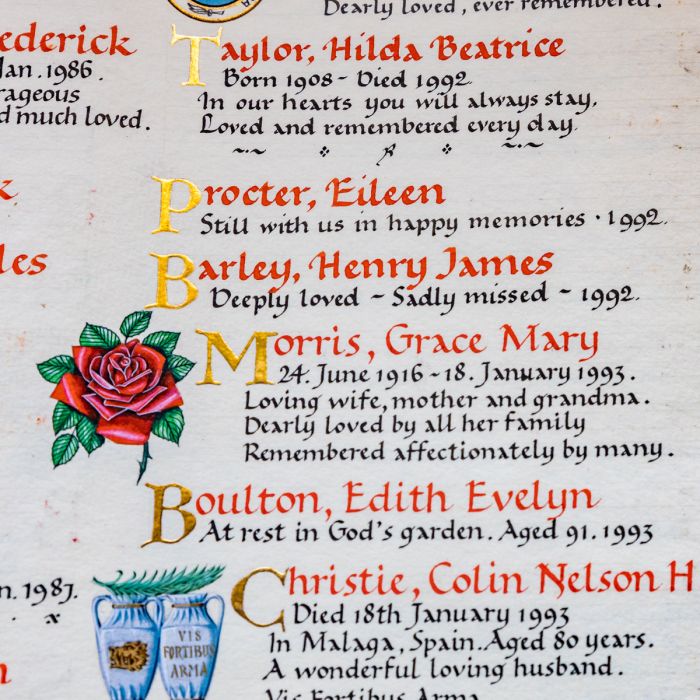 Dearly loved, ever remembered.
ederick
Jan. 1986.
rageous
d much loved.
Taylor, Hilda Beatrice
Born 1908 - Died 1992
In our hearts you will always stay,
Loved and remembered every day.
Procter, Eileen
Still with us in happy memories · 1992.
Barley, Henry James
Deeply loved ~ Sadly missed ~ 1992.
les
Morris, Grace Mary
24. June 1916 ~ 18. January 1993.
Loving wife, mother and grandma.
Dearly loved by all her family
Remembered affectionately by many.
Boulton, Edith Evelyn
At rest in God's garden. Aged 91. 1993
n. 1987.
Christie, Colin Nelson H
Died 18th January 1993
In Malaga, Spain. Aged 80 years.
A wonderful loving husband.
Vis Fortibus Arma
VIS
FORTIBUS
ARMA